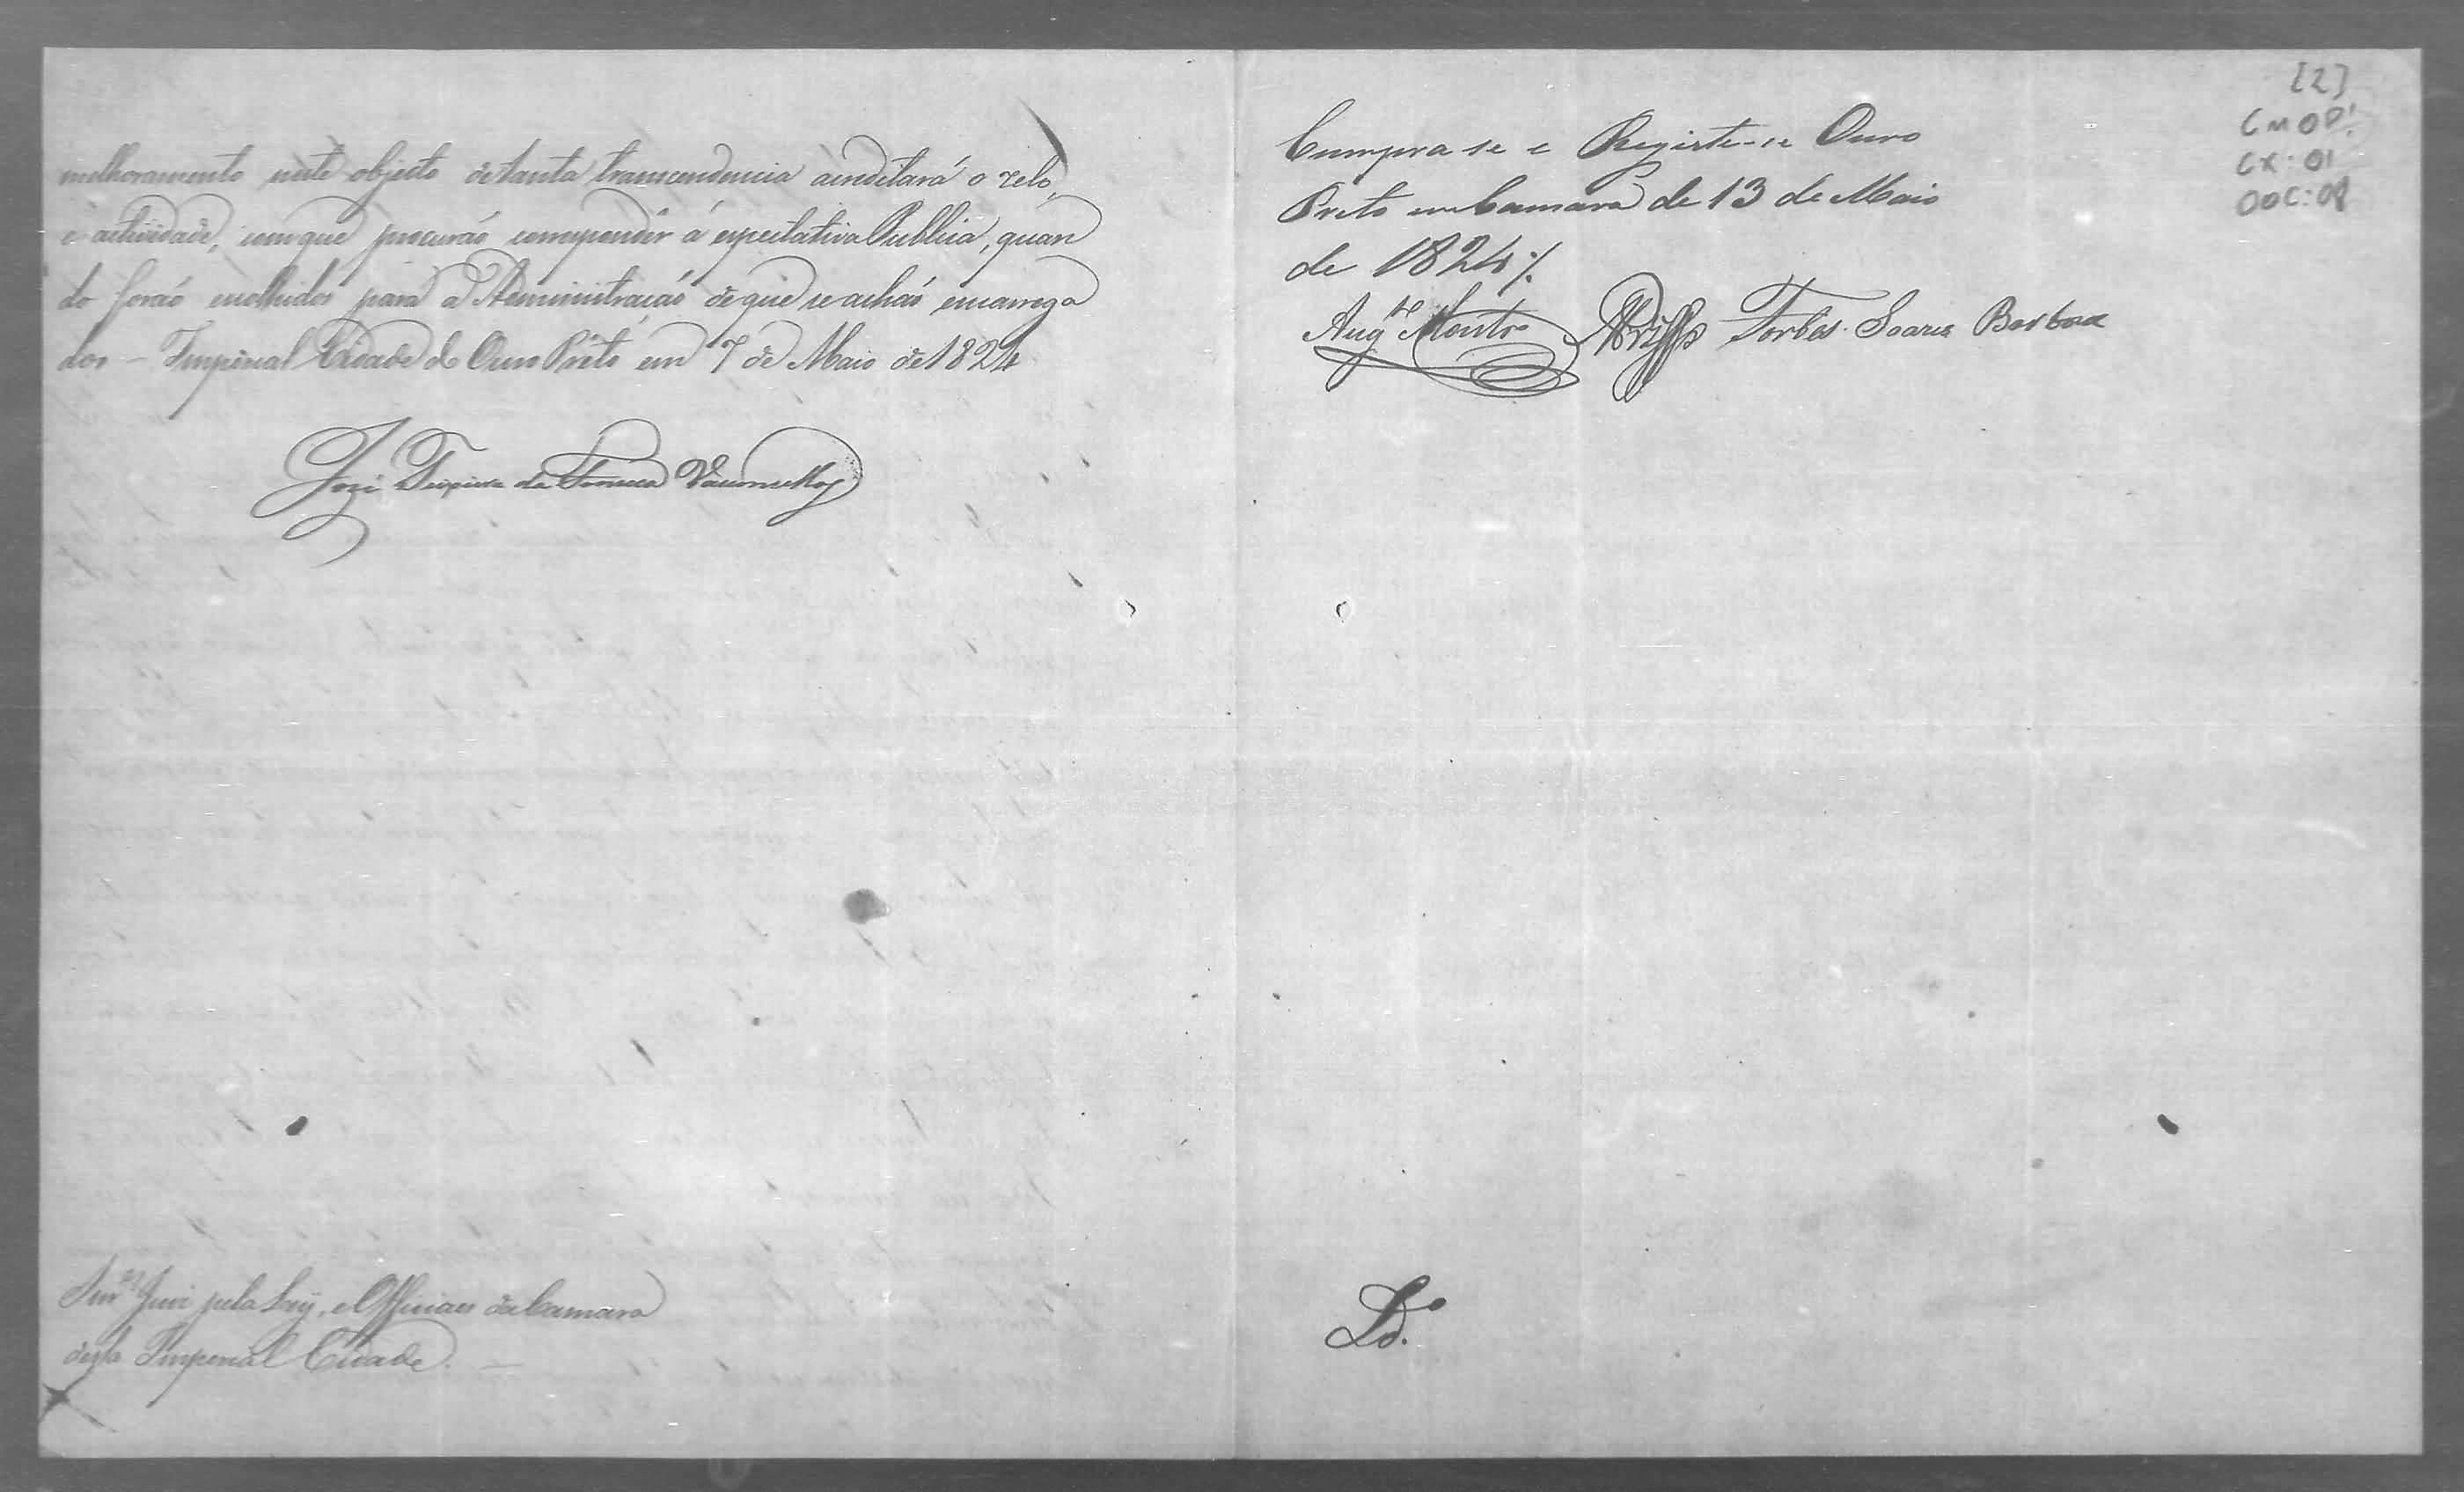 melhoramento neste objecto de tanta transcendencia acreditará o zelo,
e actividade, com que procuraõ corresponder á expectativa Publica, quan
do foraõ escolhidos para a Administraçaõ de que se achaõ encarrega
dos – Imperial Cidade do Ouro Preto em 7 de Maio de 1824
José Teixeira da Fonseca Vasconcellos
Snr.es Juiz pela Ley, e Officiaes da Camara
desta Imperial Cidade. —
[2]
CMOP
CX: 01
DOC: 08
Cumpra se e Registe-se Ouro
Preto em Camara de 13 de Maio
de 1824
Aug.to Montr.o Torbes. Soares Barboza
Ld.o